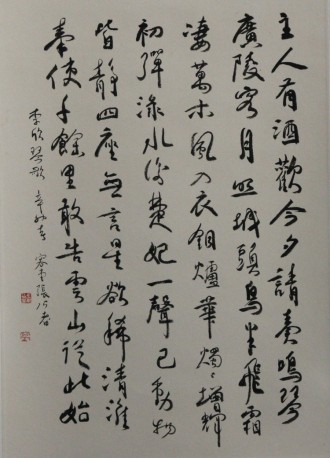 主人有酒歡今夕請奏鳴琴
廣陵客月照城頭烏半飛霜
凄萬木風入衣銅爐華燭々增輝
初彈淥水後楚妃一聲已動物
皆靜四座無言星欲稀清淮
奉使千餘里敢告雲山從此始
李欣琴歌